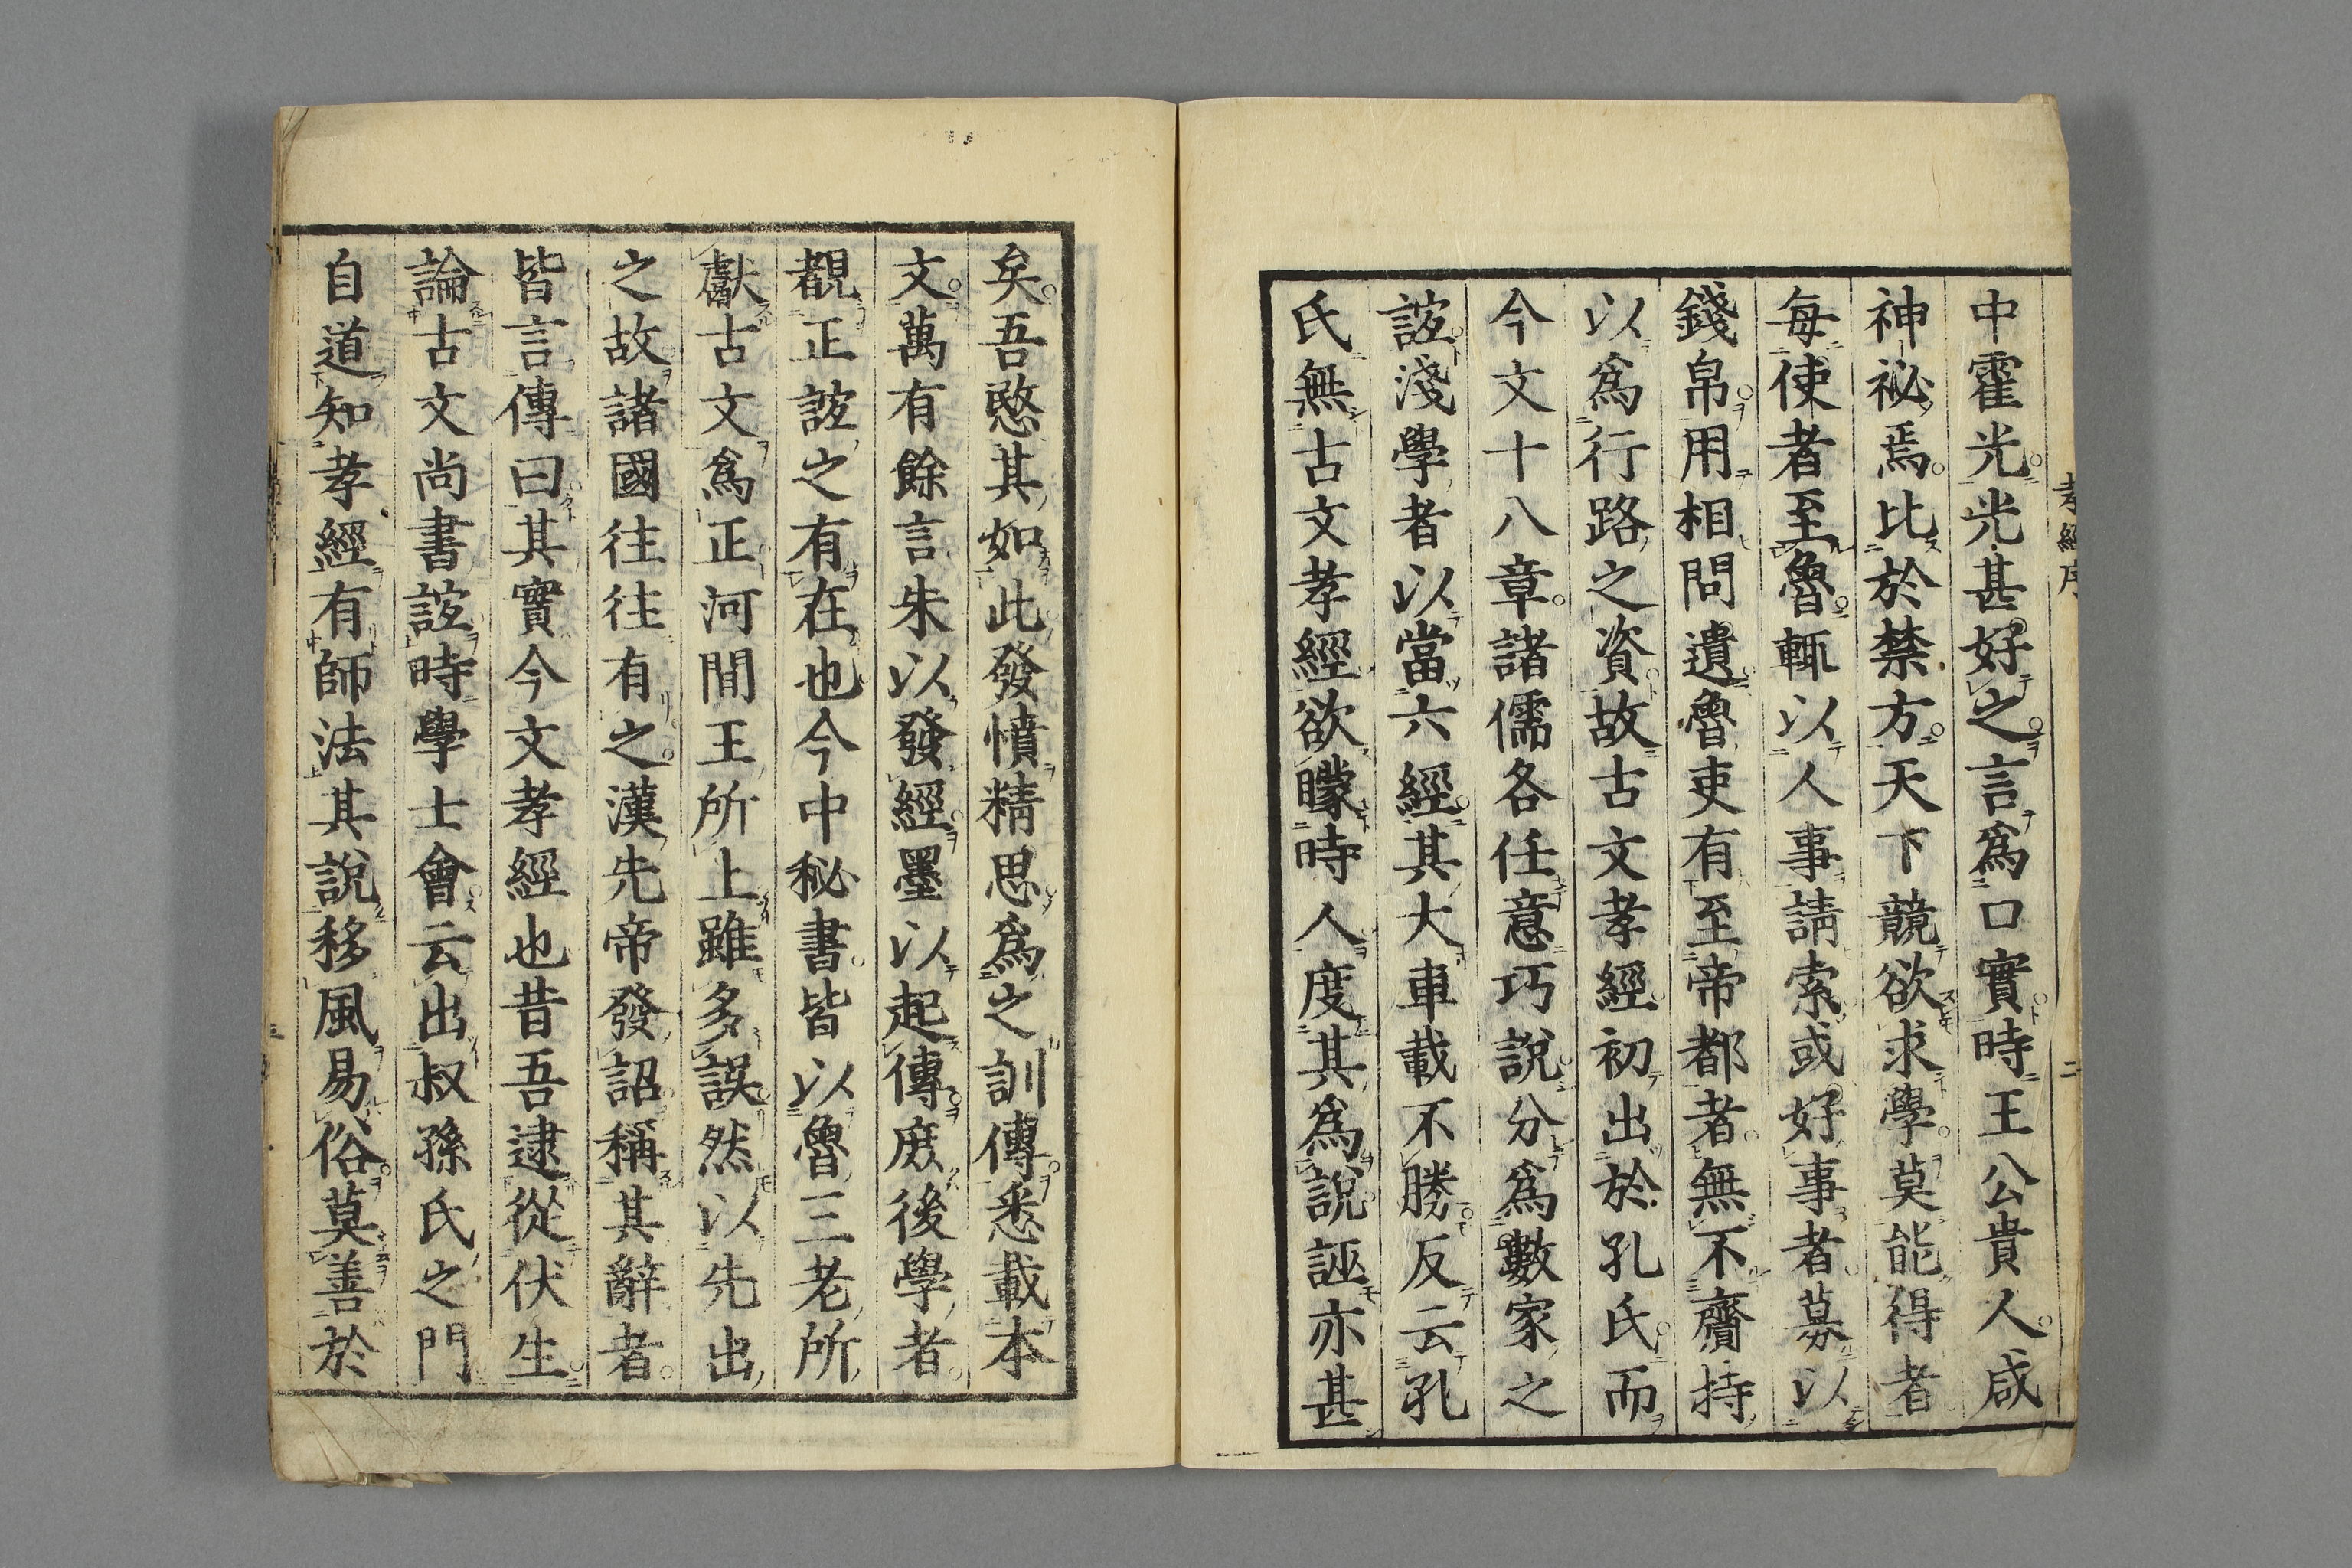 孝經序
二
中霍光光甚好之言爲口實時王公貴人咸
神祕焉比於禁方天下競欲求學莫能得者
每使者至魯輒以人事請索或好事者募以
錢帛用相問遺魯吏有至帝都者無不齎持
以爲行路之資故古文孝經初出於孔氏而
今文十八章諸儒各任意巧說分爲數家之
誼淺學者以當六經其大車載不勝反云孔
氏無古文孝經欲矇時人度其爲說誣亦甚
矣吾愍其如此發憤精思爲之訓傳悉載本
文萬有餘言朱以發經墨以起傳庶後學者
覩正誼之有在也今中秘書皆以魯三老所
獻古文爲正河間王所上雖多誤然以先出
之故諸國往往有之漢先帝發詔稱其辭者
皆言傳曰其實今文孝經也昔吾逮從伏生
論古文尚書誼時學士會云出叔孫氏之門
自道知孝經有師法其說移風易俗莫善於